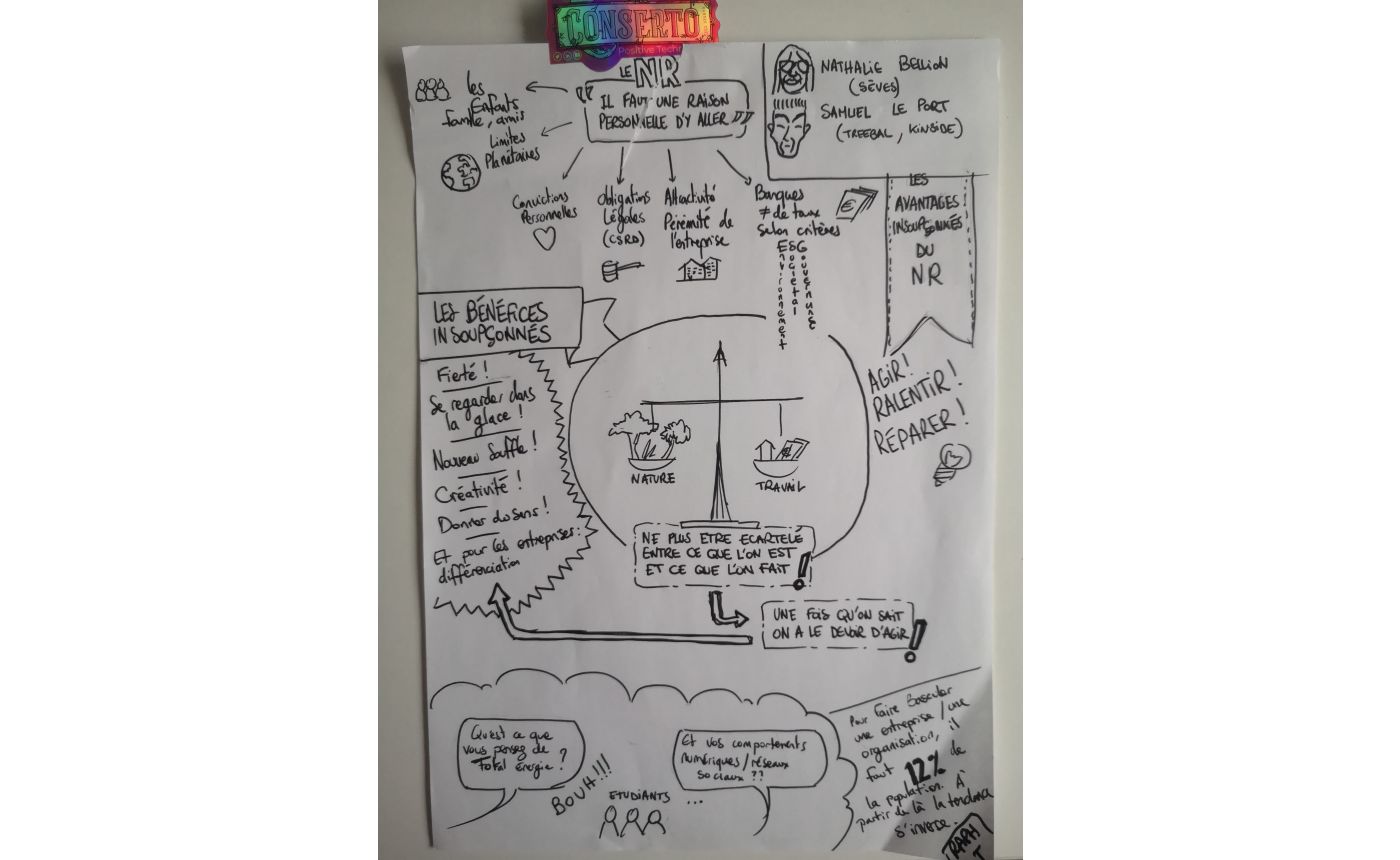 CONSERTO
Positive Tech
LE NR
"IL FAUT UNE RAISON
PERSONNELLE D'Y ALLER"
les
Enfants
famille, amis
Limites
Planétaires
Convictions
Personnelles
Obligations
Légales
(CSRD)
Attractivité
Pérénité de
l'entreprise
Banques
≠ de taux
selon critères
ESG
Environnement
Sociétal
Gouvernance
NATHALIE BELLION
(SÈVES)
SAMUEL LE PORT
(TREEBAL, KINSIDE)
LES
AVANTAGES
INSOUPÇONNÉS
DU
NR
AGIR!
RALENTIR!
RÉPARER!
LES BÉNÉFICES
INSOUPÇONNÉS
Fierté!
Se regarder dans
la glace!
Nouveau Souffle!
Créativité!
Donner du sens!
Et pour les entreprises:
différenciation
NATURE
TRAVAIL
NE PLUS ETRE ECARTELÉ
ENTRE CE QUE L'ON EST
ET CE QUE L'ON FAIT!
UNE FOIS QU'ON SAIT
ON A LE DEVOIR D'AGIR!
Qu'est ce que
vous pensez de
Total énergie?
BOUH!!!
ETUDIANTS
...
Et vos comportements
numériques/réseaux
sociaux ??
Pour Faire Basculer
une entreprise/une
organisation, il
faut 12% de
la population. A
partir de là la tendance
s'inverse.
RAPH
T